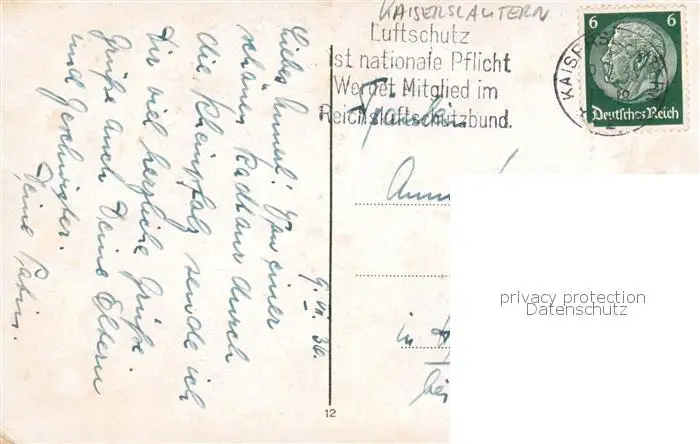 KAISERSLAUTERN
Luftschutz
ist nationale Pflicht
Werdet Mitglied im
Reichsluftschutzbund.
6 6
Deutsches Reich
KAISE
Fräulein
in
bei
privacy protection
Datenschutz
12
9. VI. 36.
Liebes Annerl! Von einer
schönen Radtour durch
die Rheinpfalz sende ich
Dir viel herzliche Grüße.
Grüße auch Deine Eltern
und Geschwister.
Deine